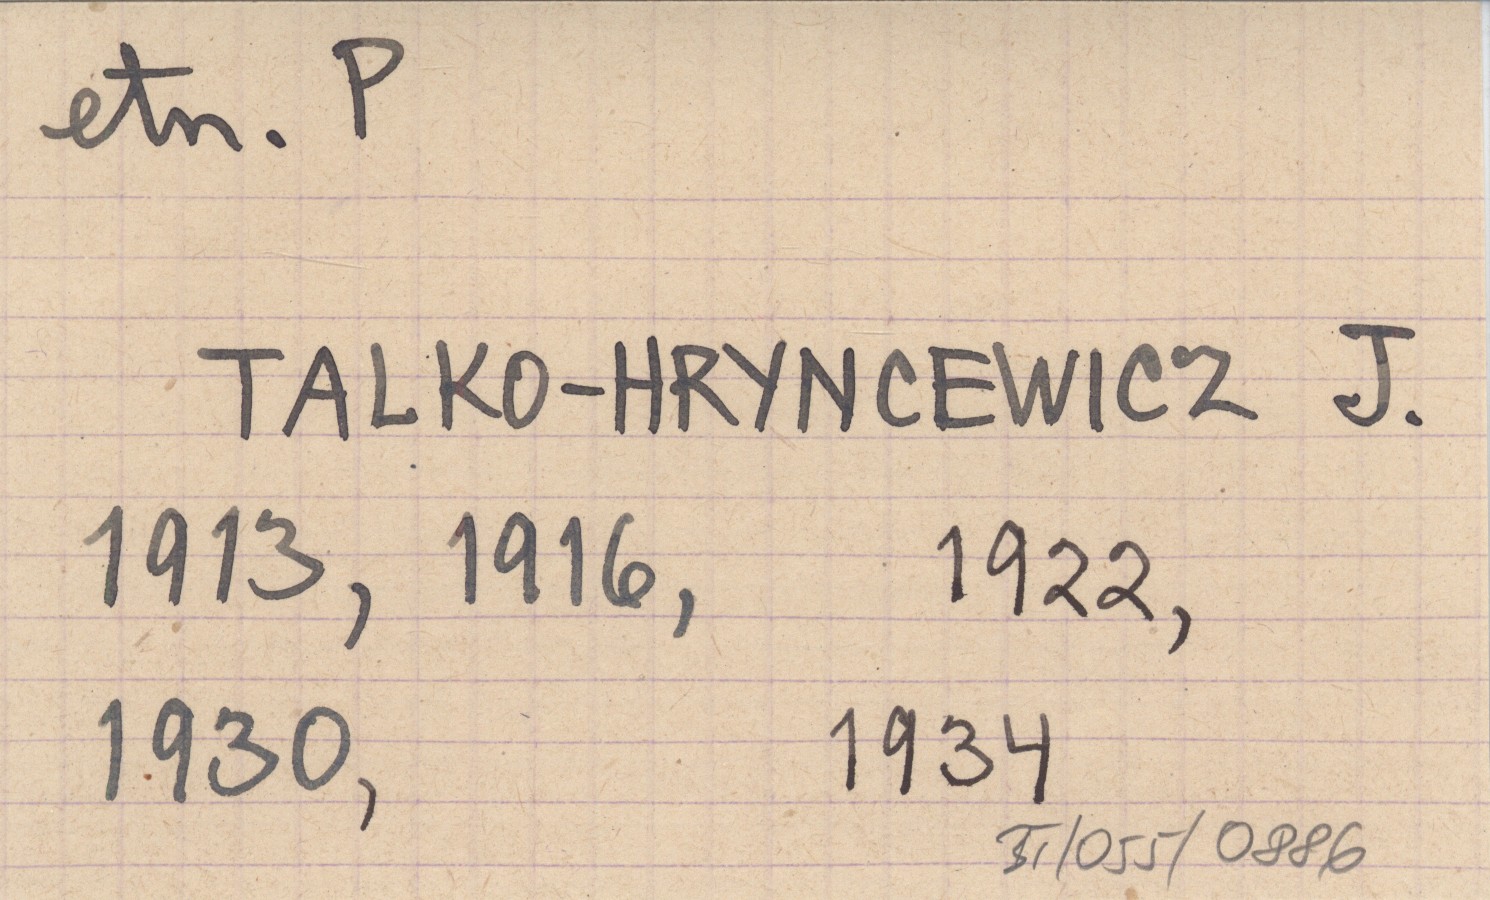 etn. P
TALKO-HRYNCEWICZ J.
1913, 1916, 1922,
1930, 1934
/055/0886